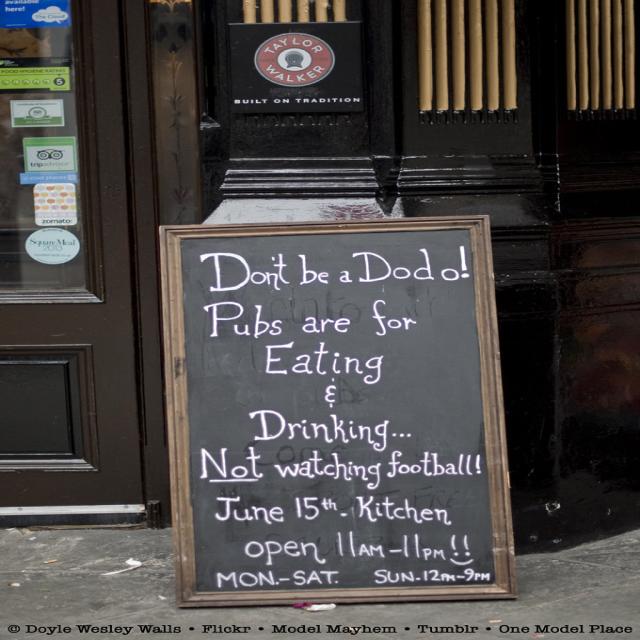 available
here!
The Cloud
FOOD HYGIENE RATING
5
tripadvisor
zomato
Square Meal
2015
TAYLOR
WALKER
BUILT ON TRADITION
Don't be a Dodo!
Pubs are for
Eating
&
Drinking...
Not watching football!
June 15th - Kitchen
open 11AM-11PM!!
MON.-SAT. SUN-12PM-9PM
© Doyle Wesley Walls • Flickr • Model Mayhem • Tumblr • One Model Place